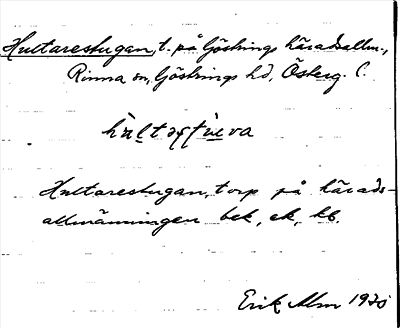 Hultarestugan, t. på Göstrings häradsallm.,
Rinna sn, Göstrings hd, Österg. l.
Hultarestugan, torp på härads-
allmänningen bek, ek, kb.
Erik Alm 1925